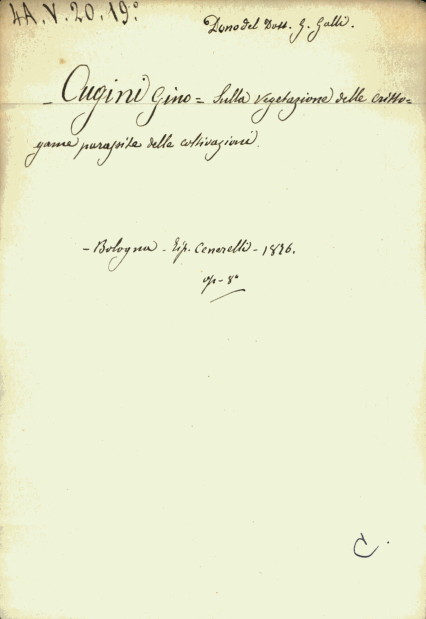 4A.V.20.19°
Dono del Dott. G. Galli.
- Cugini Gino = Sulla vegetazione delle critto=
game parassite delle coltivazioni.
- Bologna - Tip. Cenerelli - 1876.
op - 8°
C.